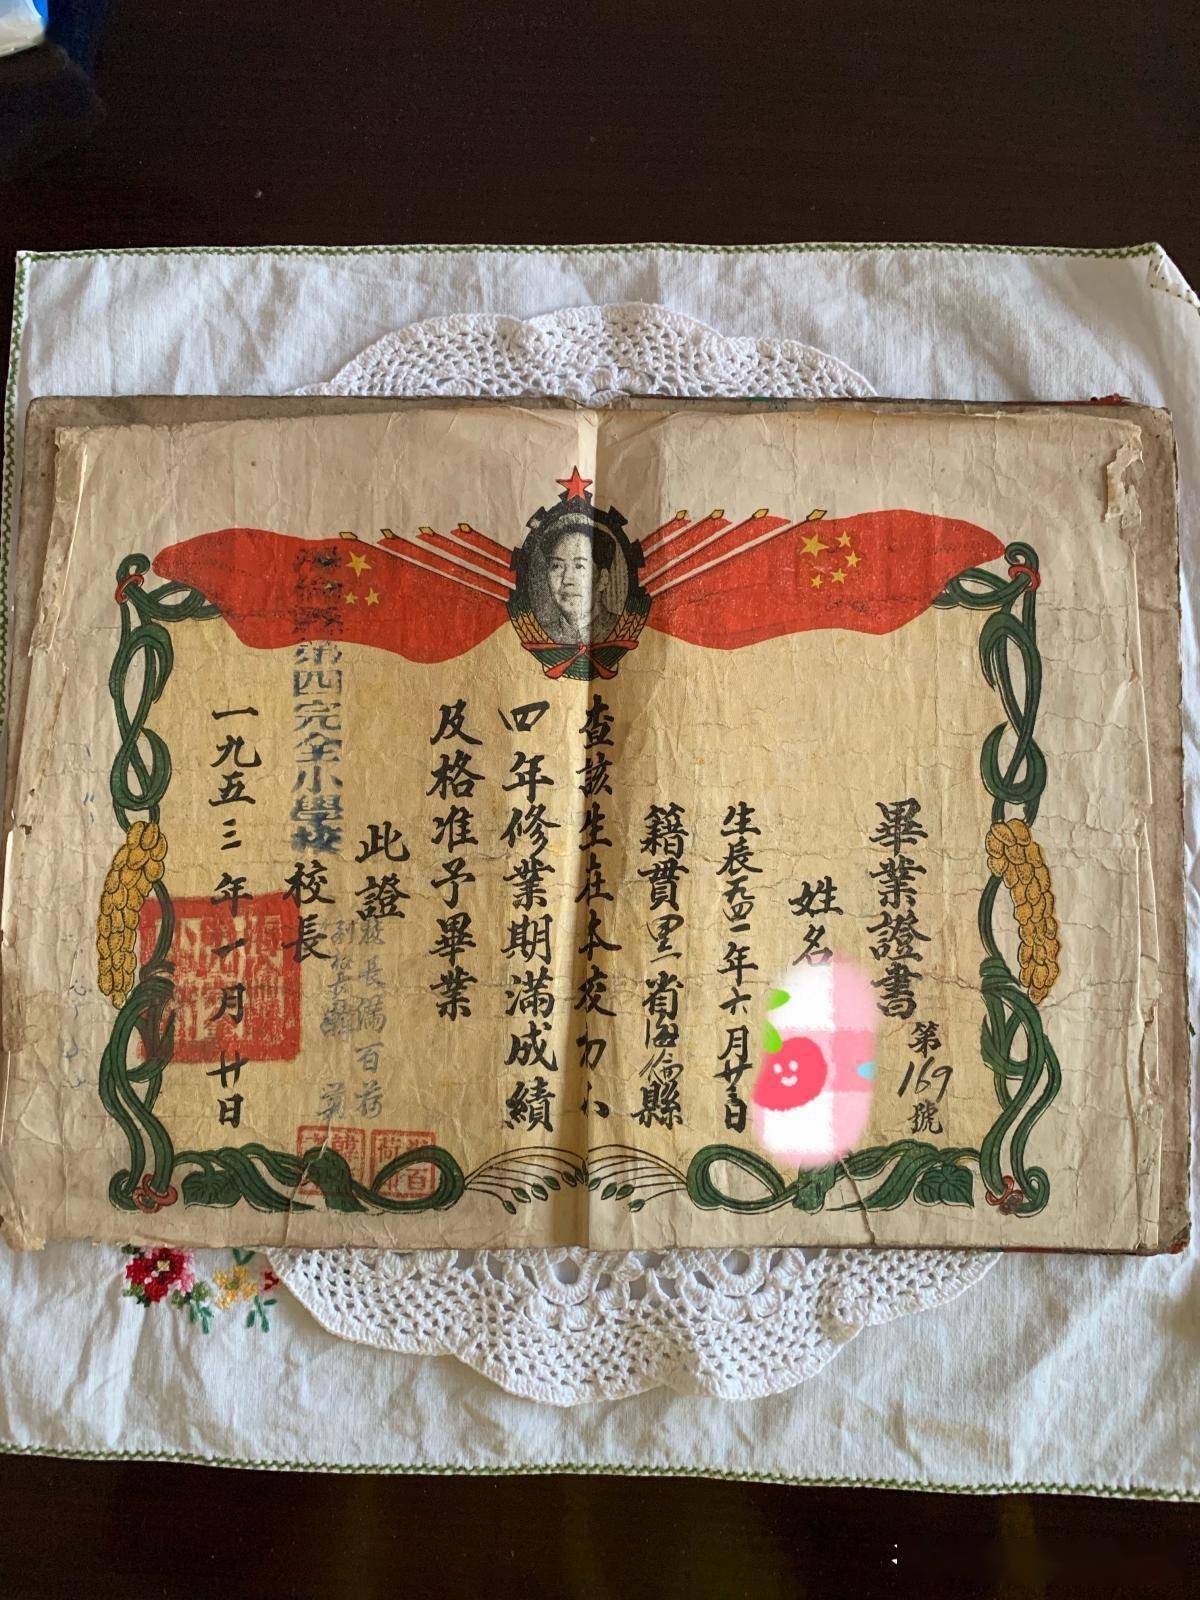 畢業證書
第169號
姓名
生辰一九四一年六月廿三日
籍貫黑省海倫縣
查該生在本校初小
四年修業期滿成績
及格准予畢業
此證
校長滿百
副校長韓
海倫縣第四完全小學校
校長
一九五三年一月廿日